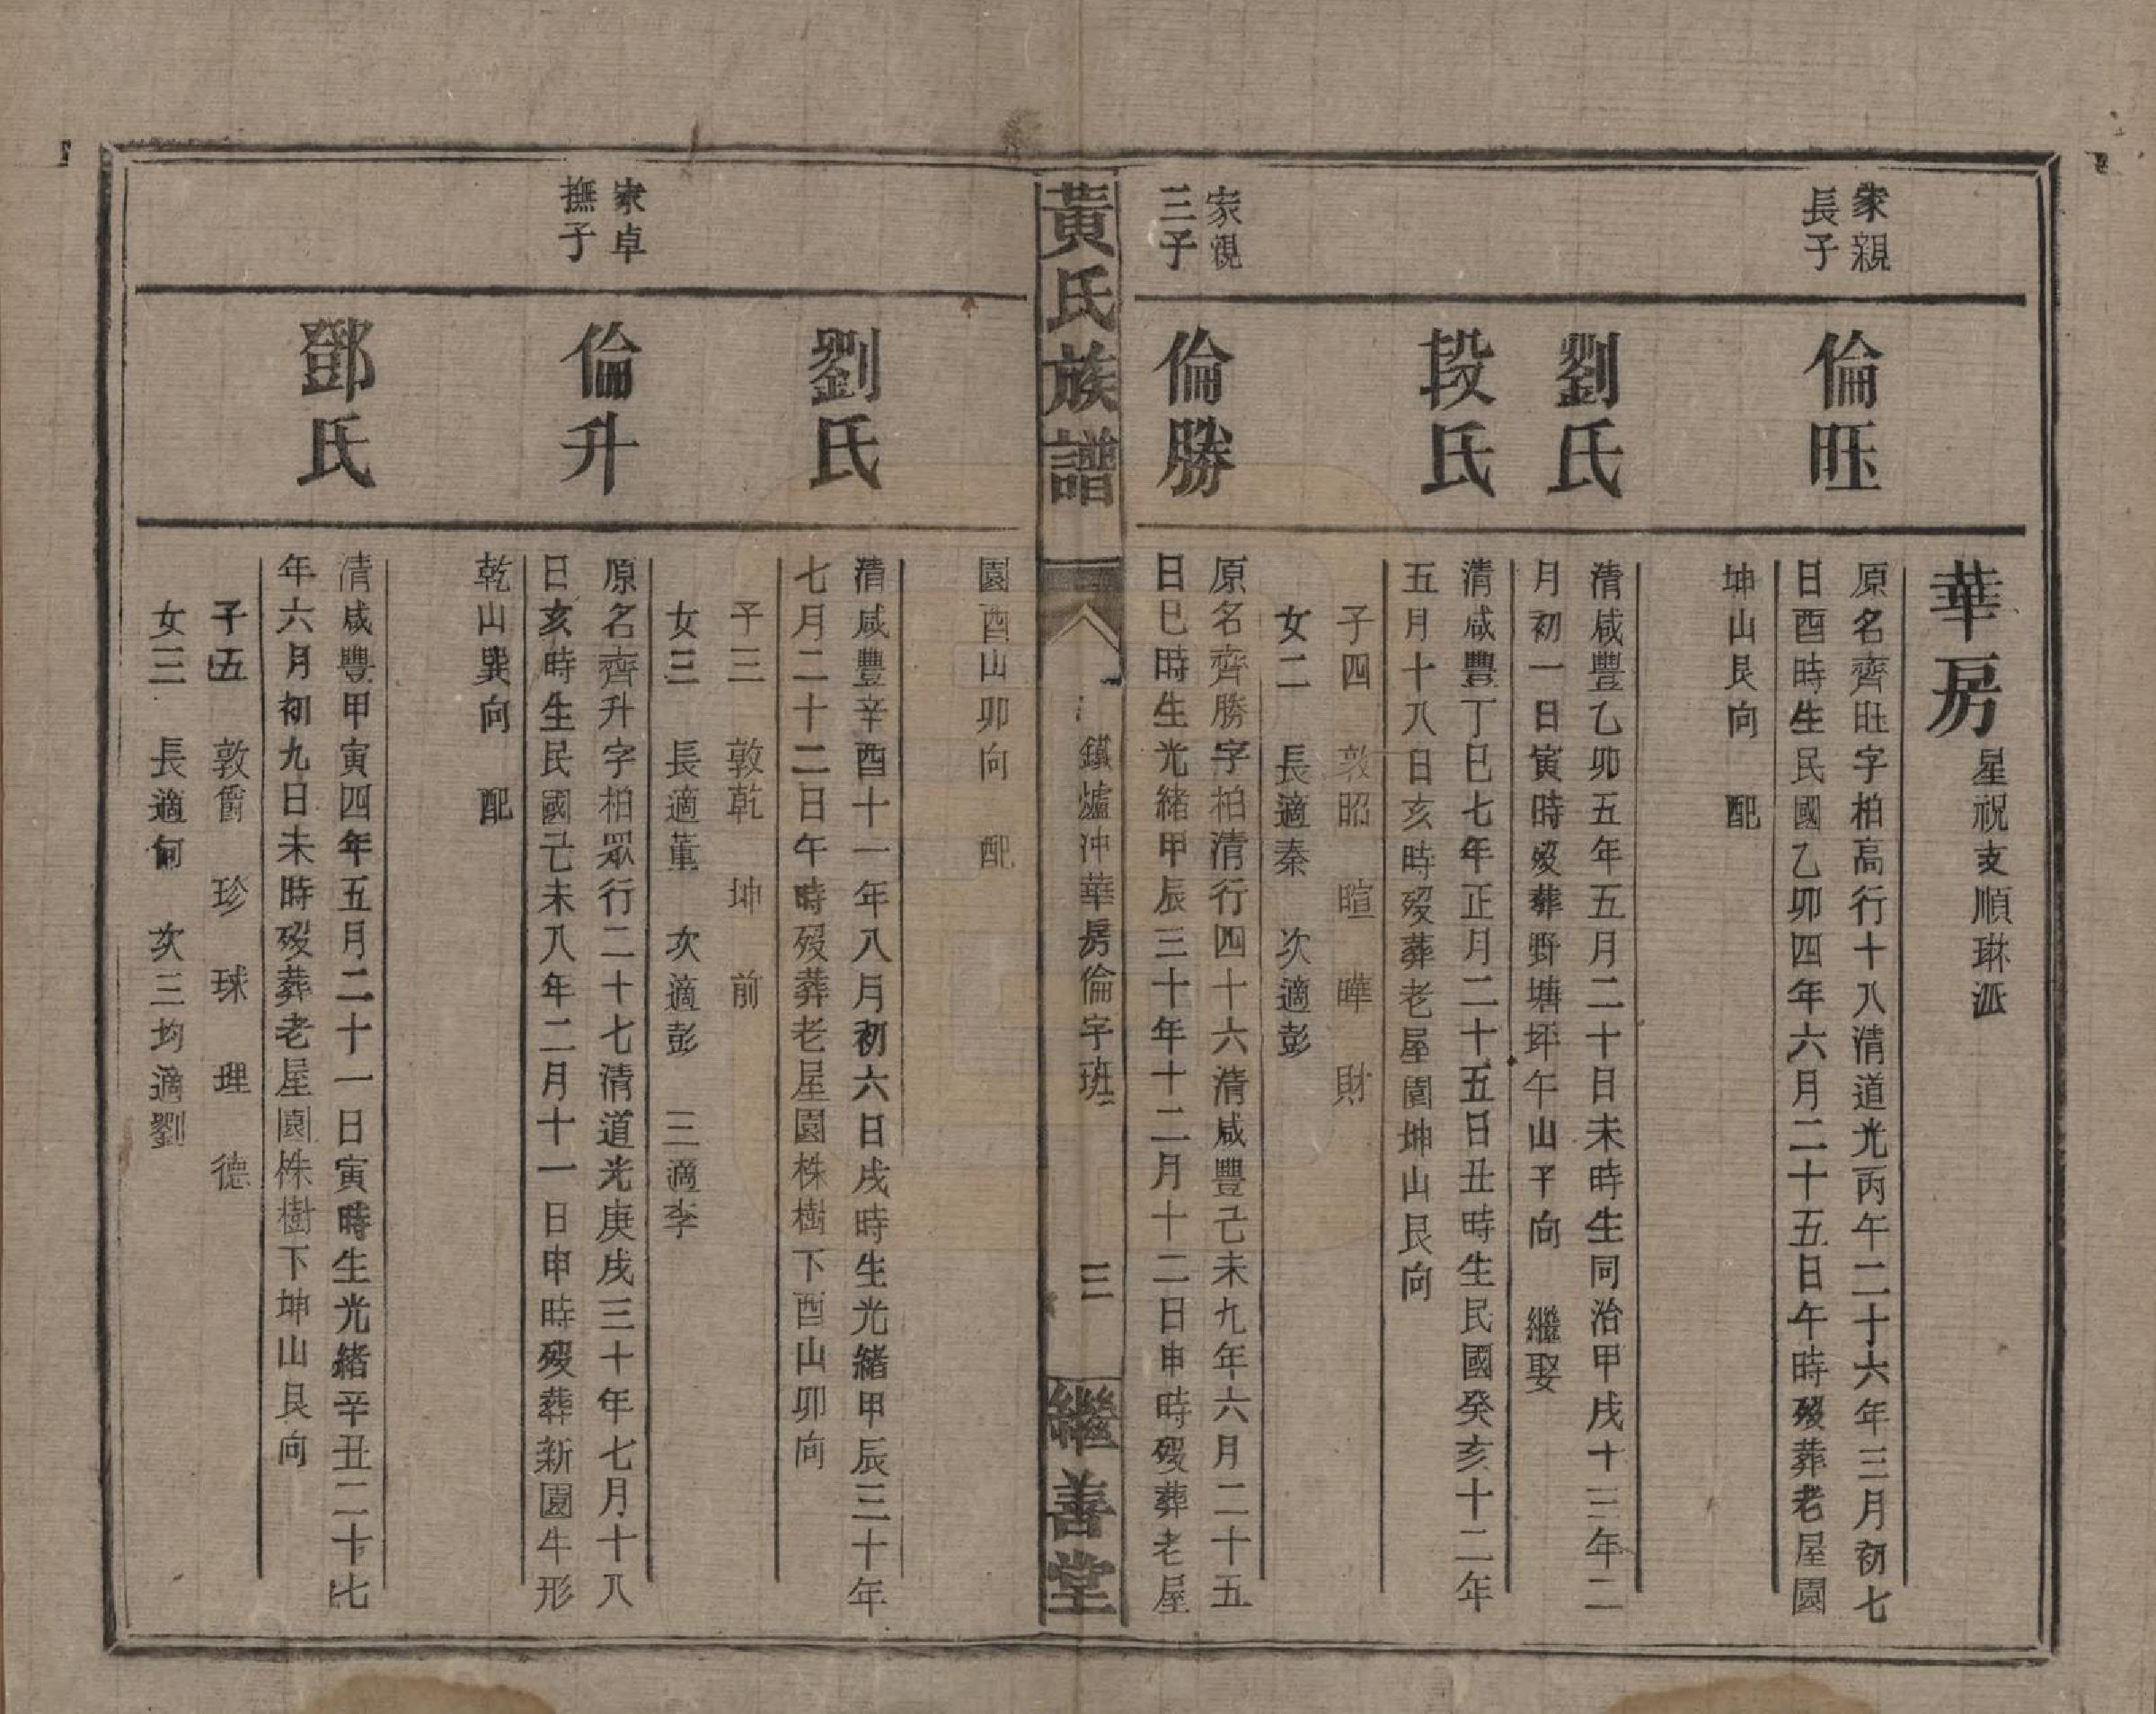 華房 星祝支順琳派
家親
長子
倫旺
原名齊旺字柏高行十八清道光丙午二十六年三月初七
日酉時生民國乙卯四年六月二十五日午時歿葬老屋園
坤山艮向 配
劉氏
清咸豐乙卯五年五月二十日未時生同治甲戌十三年二
月初一日寅時歿葬野塘坪午山子向 繼娶
段氏
清咸豐丁巳七年正月二十五日丑時生民國癸亥十二年
五月十八日亥時歿葬老屋園坤山艮向
子四 敦昭 暄 曄 財
女二 長適秦 次適彭
家視
三子
倫勝
原名齊勝字柏清行四十六清咸豐己未九年六月二十五
日巳時生光緒甲辰三十年十二月十二日申時歿葬老屋
黃氏族譜
卷八
鐵爐沖華房倫字班
三
繼善堂
園酉山卯向 配
劉氏
清咸豐辛酉十一年八月初六日戌時生光緒甲辰三十年
七月二十二日午時歿葬老屋園株樹下酉山卯向
子三 敦乾 坤 前
女三 長適董 次適彭 三適李
家卓
撫子
倫升
原名齊升字柏眾行二十七清道光庚戌三十年七月十八
日亥時生民國己未八年二月十一日申時歿葬新園牛形
乾山巽向 配
鄧氏
清咸豐甲寅四年五月二十一日寅時生光緒辛丑二十七
年六月初九日未時歿葬老屋園株樹下坤山艮向
子五 敦爵 珍 球 理 德
女三 長適何 次三均適劉